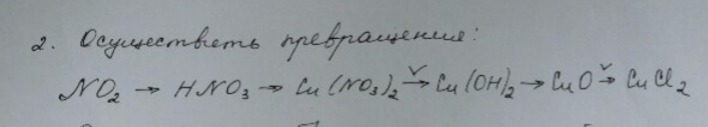 2. Осуществить превращения:
NO₂ → HNO₃ → Cu(NO₃)₂ →ᵛ Cu(OH)₂ → CuO →ᵛ CuCl₂